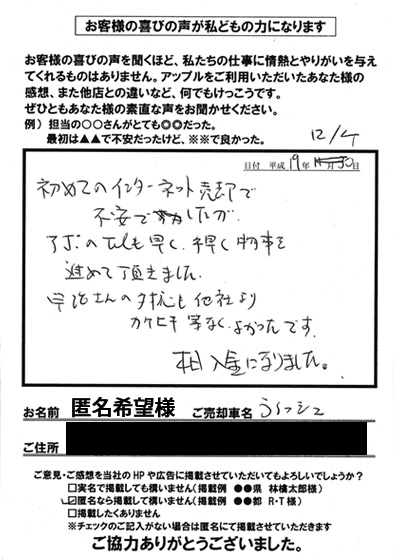 お客様の喜びの声が私どもの力になります
お客様の喜びの声を聞くほど、私たちの仕事に情熱とやりがいを与え
てくれるものはありません。アップルをご利用いただいたあなた様の
感想、また他店との違いなど、何でもけっこうです。
ぜひともあなた様の素直な声をお聞かせください。
例）担当の○○さんがとても◎◎だった。
最初は▲▲で不安だったけど、※※で良かった。
12/4
日付 平成 19年 月30日
初めてのインターネット売却で
不安でしたが、
アポのTELも早く、手早く物事を
進めて頂きました。
さんの対応も他社より
カケヒキ等なくよかったです。
入金になりました。
お名前 匿名希望様 ご売却車名
ご住所
ご意見・ご感想を当社のHPや広告に掲載させていただいてもよろしいでしょうか？
□実名で掲載しても構いません(掲載例 ●●県 林檎太郎様)
☑匿名なら掲載して構いません(掲載例 ●●都 R・T様)
□掲載したくありません
※チェックのご記入がない場合は匿名にて掲載させていただきます
ご協力ありがとうございました。